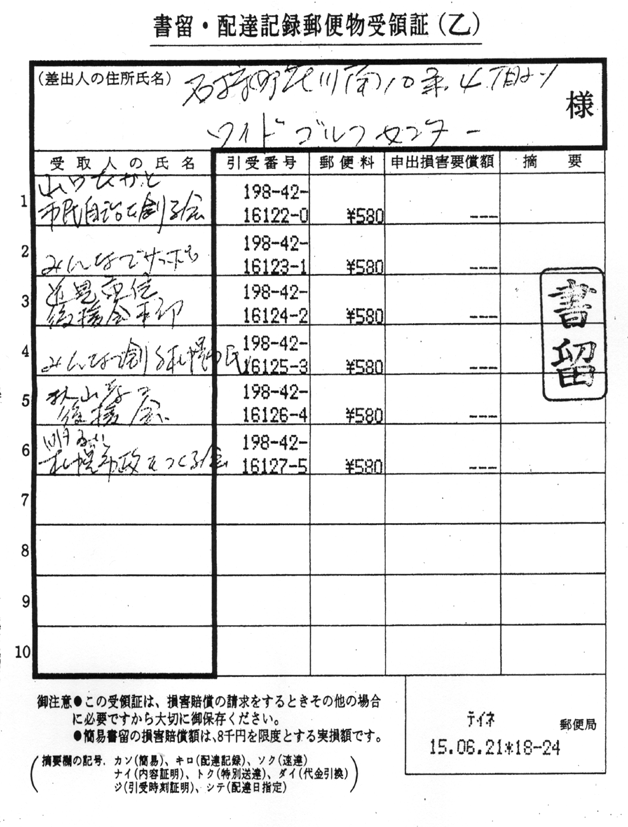 書留・配達記録郵便物受領証(乙)
(差出人の住所氏名)
花川南10条4丁目
ワイドゴルフセンター
様
受取人の氏名 引受番号 郵便料 申出損害要償額 摘要
1 山口たかと 市民自治を創る会 198-42-16122-0 ¥580 ---
2 みんなでサッポロ 198-42-16123-1 ¥580 ---
3 後援会 198-42-16124-2 ¥580 ---
4 みんなで創る札幌市民 198-42-16125-3 ¥580 ---
5 秋山孝二 後援会 198-42-16126-4 ¥580 ---
6 明るい 札幌市政をつくる会 198-42-16127-5 ¥580 ---
7
8
9
10
書留
御注意●この受領証は、損害賠償の請求をするときその他の場合
に必要ですから大切に御保存ください。
●簡易書留の損害賠償額は、8千円を限度とする実損額です。
摘要欄の記号. カン(簡易)、キロ(配達記録)、ソク(速達)
ナイ(内容証明)、トク(特別送達)、ダイ(代金引換)
ジ(引受時刻証明)、シテ(配達日指定)
テイネ 郵便局
15.06.21*18-24